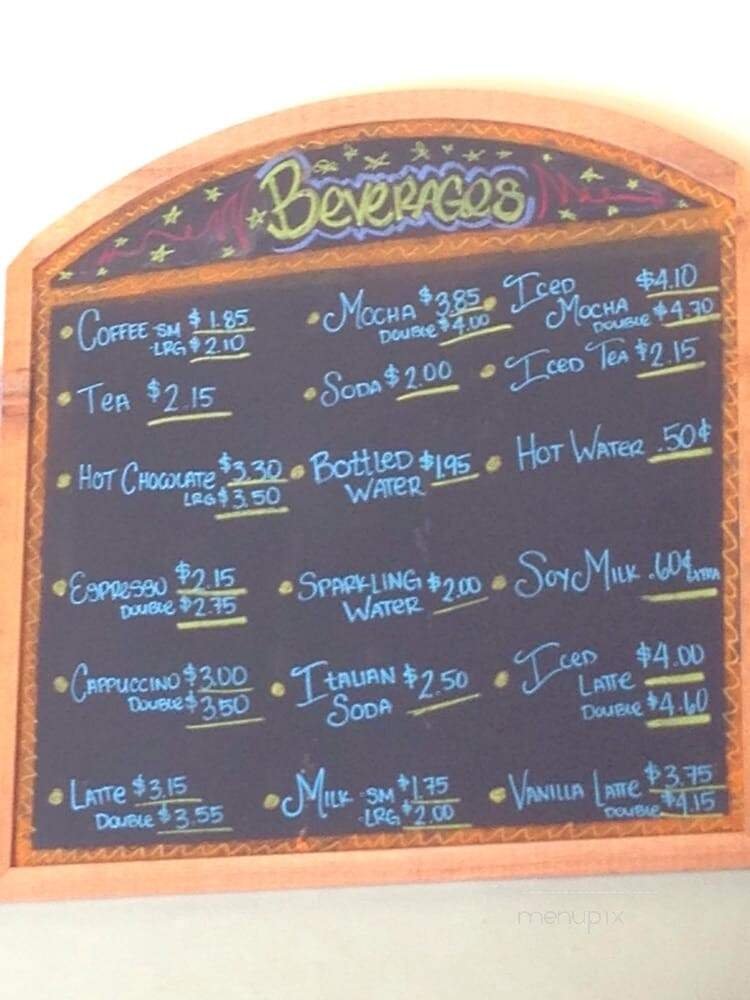 Beverages
COFFEE SM $1.85
LRG $2.10
TEA $2.15
HOT CHOCOLATE $3.30
LRG $3.50
ESPRESSO $2.15
DOUBLE $2.75
CAPPUCCINO $3.00
DOUBLE $3.50
LATTE $3.15
DOUBLE $3.55
MOCHA $3.85
DOUBLE $4.00
SODA $2.00
BOTTLED $1.95
WATER
SPARKLING $2.00
WATER
ITALIAN $2.50
SODA
MILK SM $1.75
LRG $2.00
ICED $4.10
MOCHA
DOUBLE $4.70
ICED TEA $2.15
HOT WATER .50¢
SOY MILK .60¢ EXTRA
ICED $4.00
LATTE
DOUBLE $4.60
VANILLA LATTE $3.75
DOUBLE $4.15
menupix